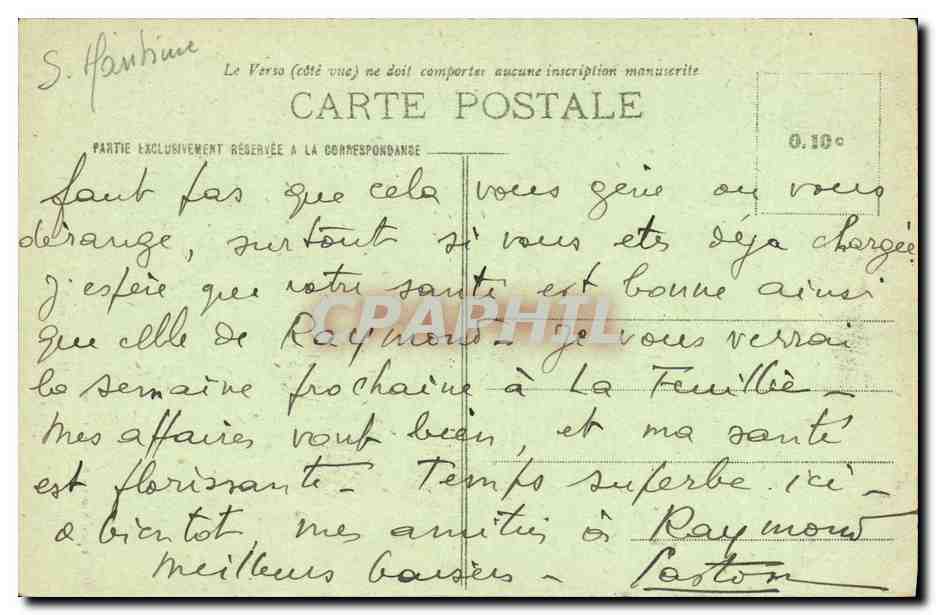 S. Maritime
Le Verso (côté vue) ne doit comporter aucune inscription manuscrite
CARTE POSTALE
0.10c
PARTIE EXCLUSIVEMENT RÉSERVÉE A LA CORRESPONDANCE
faut pas que cela vous gène ou vous
dérange, surtout si vous etes déja chargée
J'espère que votre santé est bonne ainsi
que celle de Raymond - Je vous verrai
la semaine prochaine à La Feuillie -
Mes affaires vont bien, et ma santé
est florissante - Temps superbe ici -
a bientot, mes amitiés à Raymond
Meilleurs baisers - Gaston
CPAPHIL